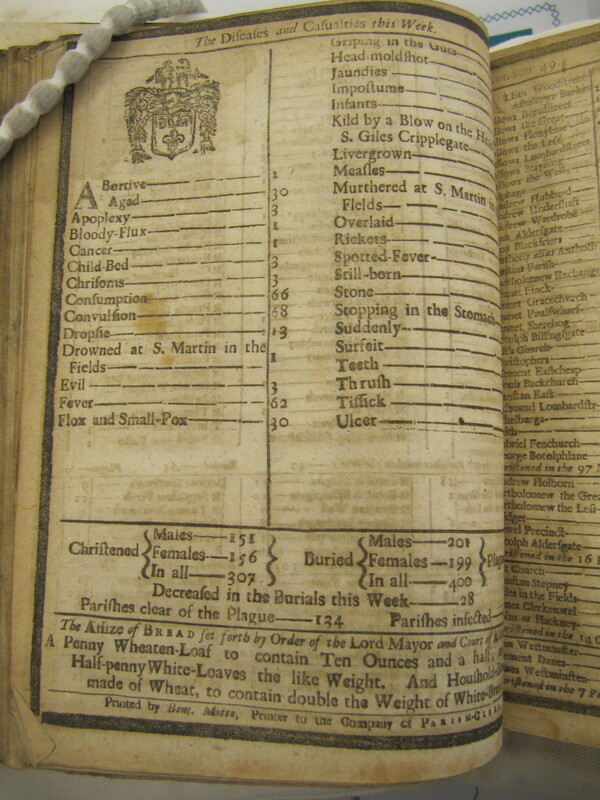 The Diseases and Casualties this Week.
ABortive 1
Aged 30
Apoplexy 3
Bloody-Flux 1
Cancer 1
Child-Bed 3
Chrisoms 3
Consumption 66
Convulsion 68
Dropsie 13
Drowned at S. Martin in the
Fields 1
Evil 3
Fever 62
Flox and Small-Pox 30
Griping in the Guts
Head-moldshot
Jaundies
Impostume
Infants
Kild by a Blow on the
S. Giles Cripplegate
Livergrown
Measles
Murthered at S. Martin
Fields
Overlaid
Rickets
Spotted-Fever
Still-born
Stone
Stopping in the Stomach
Suddenly
Surfeit
Teeth
Thrush
Tissick
Ulcer
Christened
Males 151
Females 156
In all 307
Buried
Males 201
Females 199
In all 400
Decreased in the Burials this Week 28
Parishes clear of the Plague 134 Parishes infected
The Assize of BREAD set forth by Order of the Lord Mayor and Court of
A Penny Wheaten-Loaf to contain Ten Ounces and a half,
Half-penny White-Loaves the like Weight. And
made of Wheat, to contain double the Weight of White
Printed by Benj. Motte, Printer to the Company of
49
Woodstreet
Barkin
Breadstreet
the Great
Honylane
the Less
Lombardstreet
Stayning
the Wall
Hubbard
Undershaft
Wardrobe
Aldersgate
Blackfriers
Parish
Exchange
Finck
Gracechurch
Paulswharf
Sherehog
Billingsgate
Church
Eastcheap
Backchurch
East
Lombardstr
Fenchurch
Botolphlane
in the 97
Holborn
the Grea
the Less
Precinct
Aldersgate
in the 16
Church
Stepney
in the Fields
Clerkenwel
Hackney
Westminster
Danes
Westminster
in the 7